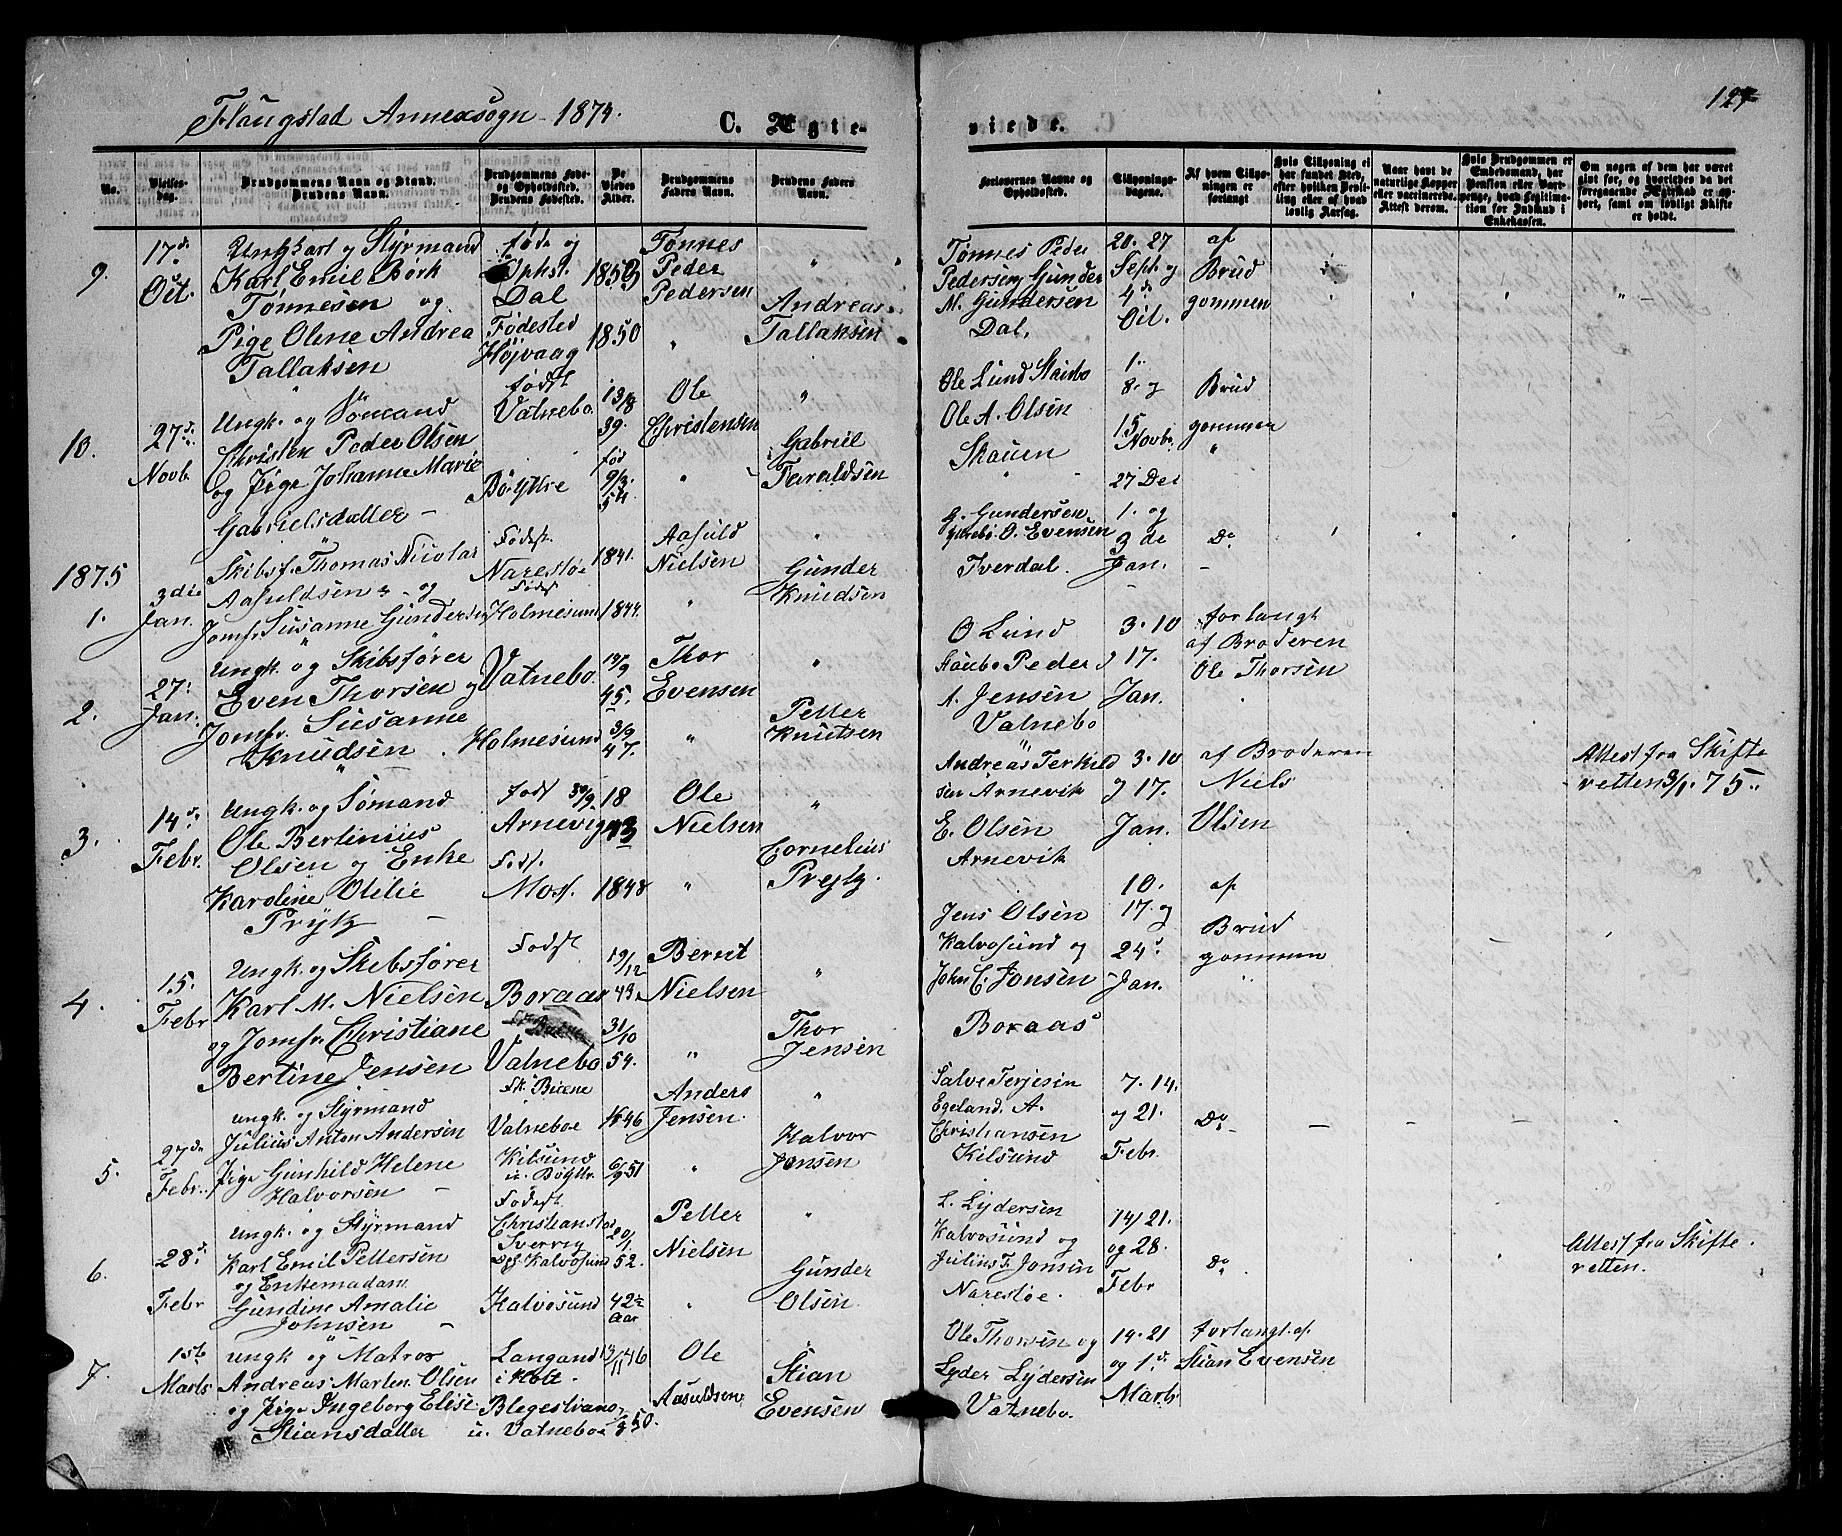 Flaugstad Annexsogn 1874.
C. Ægteviede.
127
No.
Vielsesdag.
Brudgommens Navn og Stand. Brudens Navn.
Brudgommens Føde- og Opholdssted. Brudens Fødested.
De Viedes Alder.
Brudgommens Faders Navn.
Brudens Faders Navn.
Forlovernes Navne og Opholdssted.
Tillysningsdagene.
Af hvem Tillysningen er forlangt
Hvis Tillysning ei har fundet Sted, efter hvilken Bevilling eller af hvad lovlig Aarsag.
Naar havt de naturlige Kopper eller vaccinerede. Attest derom.
Hvis Brudgommen er Embedsmand, har Pension eller Vartpenge, hvad Legitimation for Indskud i Enkekassen.
Om nogen af dem har været gift før, og hvorledes da det foregaaende Ægteskab er ophørt, samt om lovligt Skifte er holdt.
9.
17de Oct.
Ungkarl og Styrmand
Karl Emil Børk
Tønnesen og
Pige Olene Andrea
Tallaksen
føde og
Ophst.
Dal
Fødested
Højvaag
1853
1850
Tønnes
Peder
Pedersen
Andreas
Tallaksen
Tønnes Peder
Pedersen Gunder
N. Gundersen
Dal,
20. 27
Sept. og
4de
Oct.
af
Brud
gommen
10.
27de
Novb.
Ungk. og Sømand
Christen Peder Olsen
og Pige Johanna Marie
Gabrielsdatter -
fødst
Vatnebo.
13/8
39.
fød
9/3.
54
Ole
Christensen
Gabriel
Taraldsen
Ole Lund Staubo
Ole A. Olsen
Skauen
1.
8. og
15
Novb.
Brud
gommen
1875
1.
3die
Jan.
Skibsf. Thomas Nicolai
Aasuldsen og
Jomfr. Susanne Gundersen
Fødst.
Narestøe
Fødst
Holmesund
1841.
1844.
Aasuld
Nielsen
Gunder
Knudsen
G. Gundersen
O. Evensen
Tverdal.
27 Dec
1. og
3de
Jan.
Do
2.
27.
Jan.
Ungk. og Skibsfører
Even Thorsen og
Jomfr. Susanne
Knudsen
Vatnebo
Holmesund
45.
3/9
47.
Thor
Evensen
Petter
Knutsen
O Lund
Staubo Peder
A. Jensen
Vatnebo
3. 10
og 17.
Jan.
forlangt
af Broderen
Ole Thorsen
3.
14de
Febr.
Ungk. og Sømand
Ole Bertinius
Olsen og Enke
Karoline Otilie
Prytz -
Fødst
Arnevig
Fødst.
Mosf.
30/9. 18
43
1848
Ole
Nielsen
Cornelius
Prejtz.
Andreas Terkildsen
Arnevik
E. Olsen
Arnevik
3. 10
og 17.
Jan.
af Broderen
Niels
Olsen
Attest fra Skifte
retten 3/1. 75.
4.
15.
Febr
Ungk. og Skibsfører
Karl M. Nielsen
og Jomfr. Christiane
Bertine Jensen
Fødst
Boraas
Vatnebo
19/12
43.
31/10
54.
Bernt
Nielsen
Thor
Jensen
Jens Olsen
Kalvøsund og
John C. Jonsen
Boraas
10.
17. og
24de
Jan.
af
Brud
gommen
5.
27de
Febr.
ungk. og Styrmand
Julius Anton Andersen
Pige Gunhild Helene
Halvorsen -
Valneboe
Kilsund
46
6/9 51
Anders
Jensen
Halvor
Jensen
Salve Terjesen
Egeland. A.
Christiansen
Kilsund
7. 14.
og 21.
Febr.
Do
6.
28de
Febr
Ungk. og Styrmand
Karl Emil Pettersen
og Enkemadam
Gundine Amalie
Johnsen -
Fødest
Christianstad
Sverrig
Opf. Kalvøsund
Kalvøsund
20/1
52.
42½
Aar
Petter
Nielsen
Gunder
Olsen
L. Lydersen
Kalvøsund og
Julius T. Jonsen
Narestøe.
14/ 21.
og 28.
Febr
Do
Attest fra Skifte
retten.
7.
1ste
Marts
ungk og Matros
Andreas Marten. Olsen
og Pige Ingeborg Elise
Stiansdatter
Langand
i Holt.
Blegestrand
u. Vatneboe
13/11 46
50.
Ole
Aasuldsen
Stian
Evensen
Ole Thorsen og
Lyder Lydersen
Vatnebo.
14. 21
og 1ste
Marts
forlangt. af.
Stian Evensen